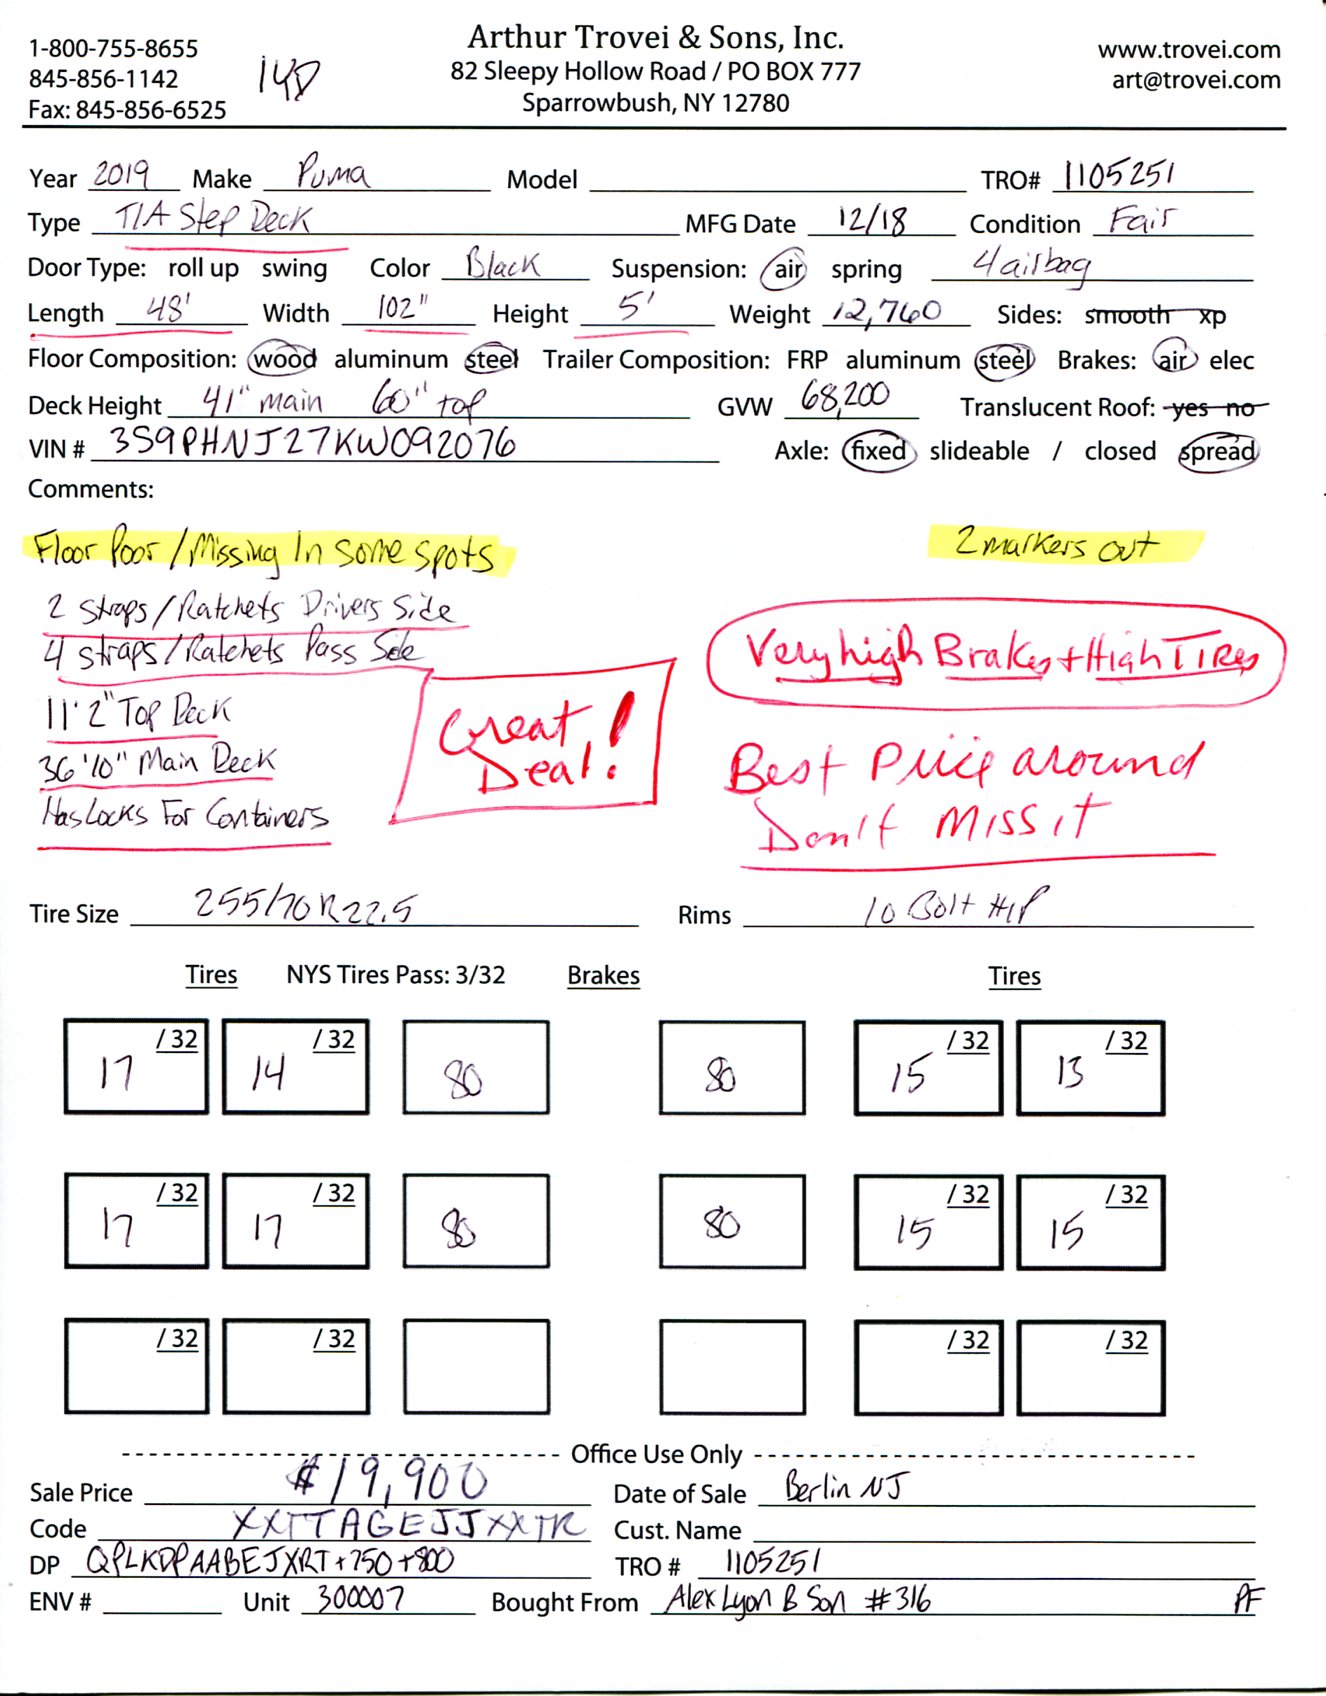 1-800-755-8655
845-856-1142
Fax: 845-856-6525
14D
Arthur Trovei & Sons, Inc.
82 Sleepy Hollow Road / PO BOX 777
Sparrowbush, NY 12780
www.trovei.com
art@trovei.com
Year 2019 Make Puma Model TRO# 1105251
Type T/A Step Deck MFG Date 12/18 Condition Fair
Door Type: roll up swing Color Black Suspension: air spring 4 airbag
Length 48' Width 102" Height 5' Weight 12,760 Sides: smooth xp
Floor Composition: wood aluminum steel Trailer Composition: FRP aluminum steel Brakes: air elec
Deck Height 41" main 60" top GVW 68,200 Translucent Roof: yes no
VIN # 3S9PHNJ27KW092076 Axle: fixed slideable / closed spread
Comments:
Floor Poor / Missing In some spots 2 markers out
2 straps / Ratchets Drivers Side
4 straps / Ratchets Pass Side
Very high Brakes + High TIRes
11'2" Top Deck
36'10" Main Deck
Has Locks For Containers
Great Deal!
Best Price around
Don't Miss it
Tire Size 255/70R22.5 Rims 10 Bolt H/P
Tires NYS Tires Pass: 3/32 Brakes Tires
17 /32 14 /32 80 80 15 /32 13 /32
17 /32 17 /32 80 80 15 /32 15 /32
/32 /32 /32 /32
Office Use Only
Sale Price $19,900 Date of Sale Berlin NJ
Code XXTTAGEJJXXTR Cust. Name
DP QPLKDPAABEJXRT+750+800 TRO # 1105251
ENV # Unit 300007 Bought From Alex Lyon & Son #316 PF